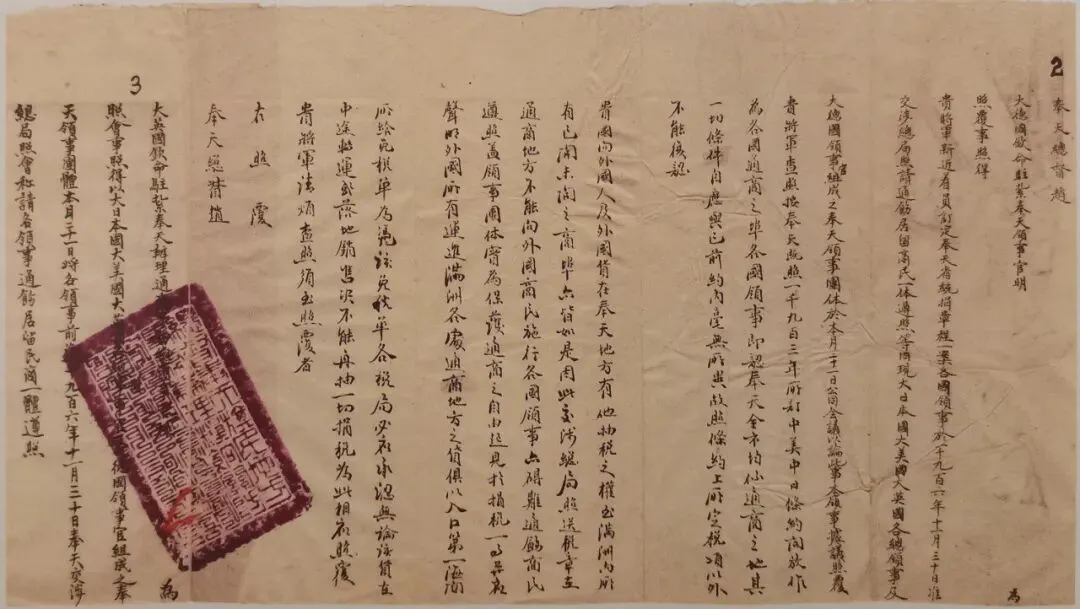 2
奉天總督趙
大德國欽命駐紮奉天領事官明
為
照覆事照得
貴將軍新近着員訂定奉天省統捐章程一案各國領事於一千九百六年十一月三十日准
交涉總局照請通飭居留商民一体遵照等因現大日本國大美國大英國各總領事及
大德國領事官組成之奉天領事團体於本月二十一日公司會議以論此事令領事據議照覆
貴將軍查照按奉天既照一千九百三年所訂中美中日條約開放作
為各國通商之埠各國領事即認奉天全市均係通商之地其
一切條件自應與已前約內毫無所異故照條約上所定稅項以外
不能復認
貴國向外國人及外國貨在奉天地方有他抽稅之權至滿洲內所
有已開未開之商埠亦皆如是因此交涉總局照送稅章在
通商地方不能向外國商民施行各國領事亦礙難通飭商民
遵照蓋領事團体實為保護通商之自由起見於捐稅一事
聲明外國所有運進滿洲各處通商地方之貨俱以入口第一海關
所給免稅單為憑該免稅單各稅局必有承認無論該貨在
中途轉運或落地銷售決不能再抽一切捐稅為此相應照覆
貴將軍煩查照須至照覆者
右照覆
奉天總督趙
3
大英國欽命駐紮奉天辦理通
為
照會事照得以大日本國大美國大國領事官組成之奉
天領事團體本月二十一日將各領事前九百六年十一月三十日奉天交涉
總局照會稱請各領事通飭居留民商一體遵照